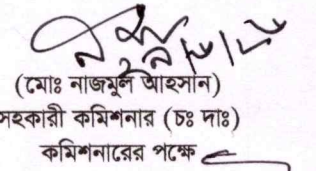 (মোঃ নাজমুল আহসান)
সহকারী কমিশনার (চঃ দাঃ)
কমিশনারের পক্ষে